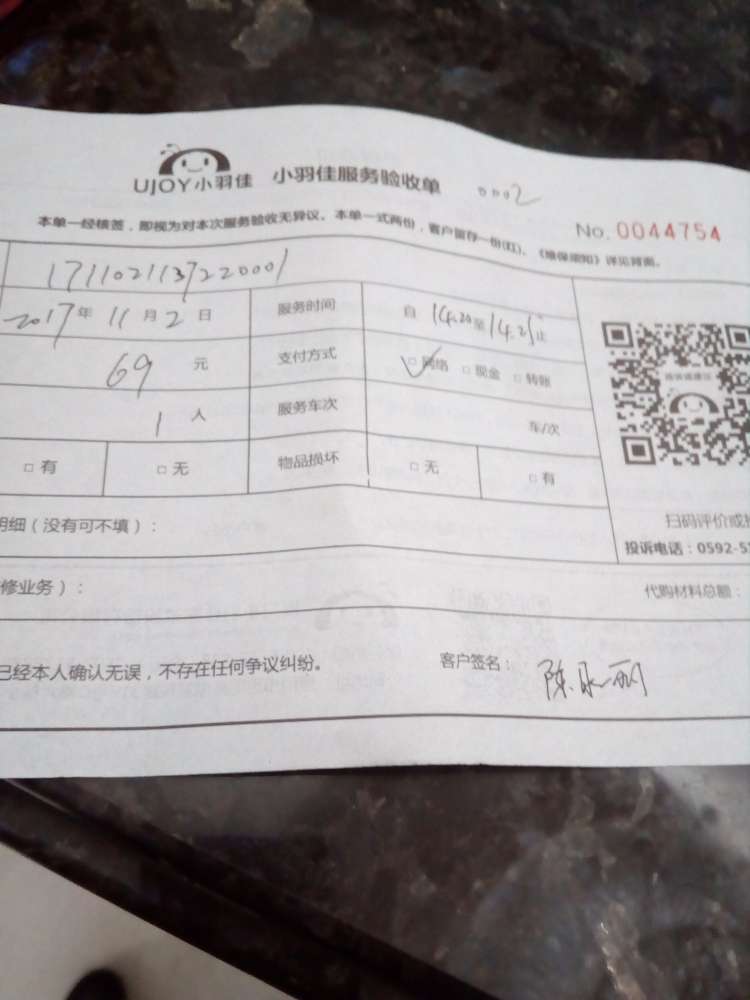 UJOY小羽佳 小羽佳服务验收单 0002
No. 0044754
本单一经核签，即视为对本次服务验收无异议。本单一式两份，客户留存一份(红)。《维保须知》详见背面。
1711021137220001
2017年 11月 2日 服务时间 自 14.20至14.21止
69 元 支付方式 □网络 □现金 □转账
1 人 服务车次 车/次
□有 □无 物品损坏 □无 □有
明细（没有可不填）：
扫码评价或
投诉电话：0592-5
修业务）： 代购材料总额：
已经本人确认无误，不存在任何争议纠纷。 客户签名：陈永丽